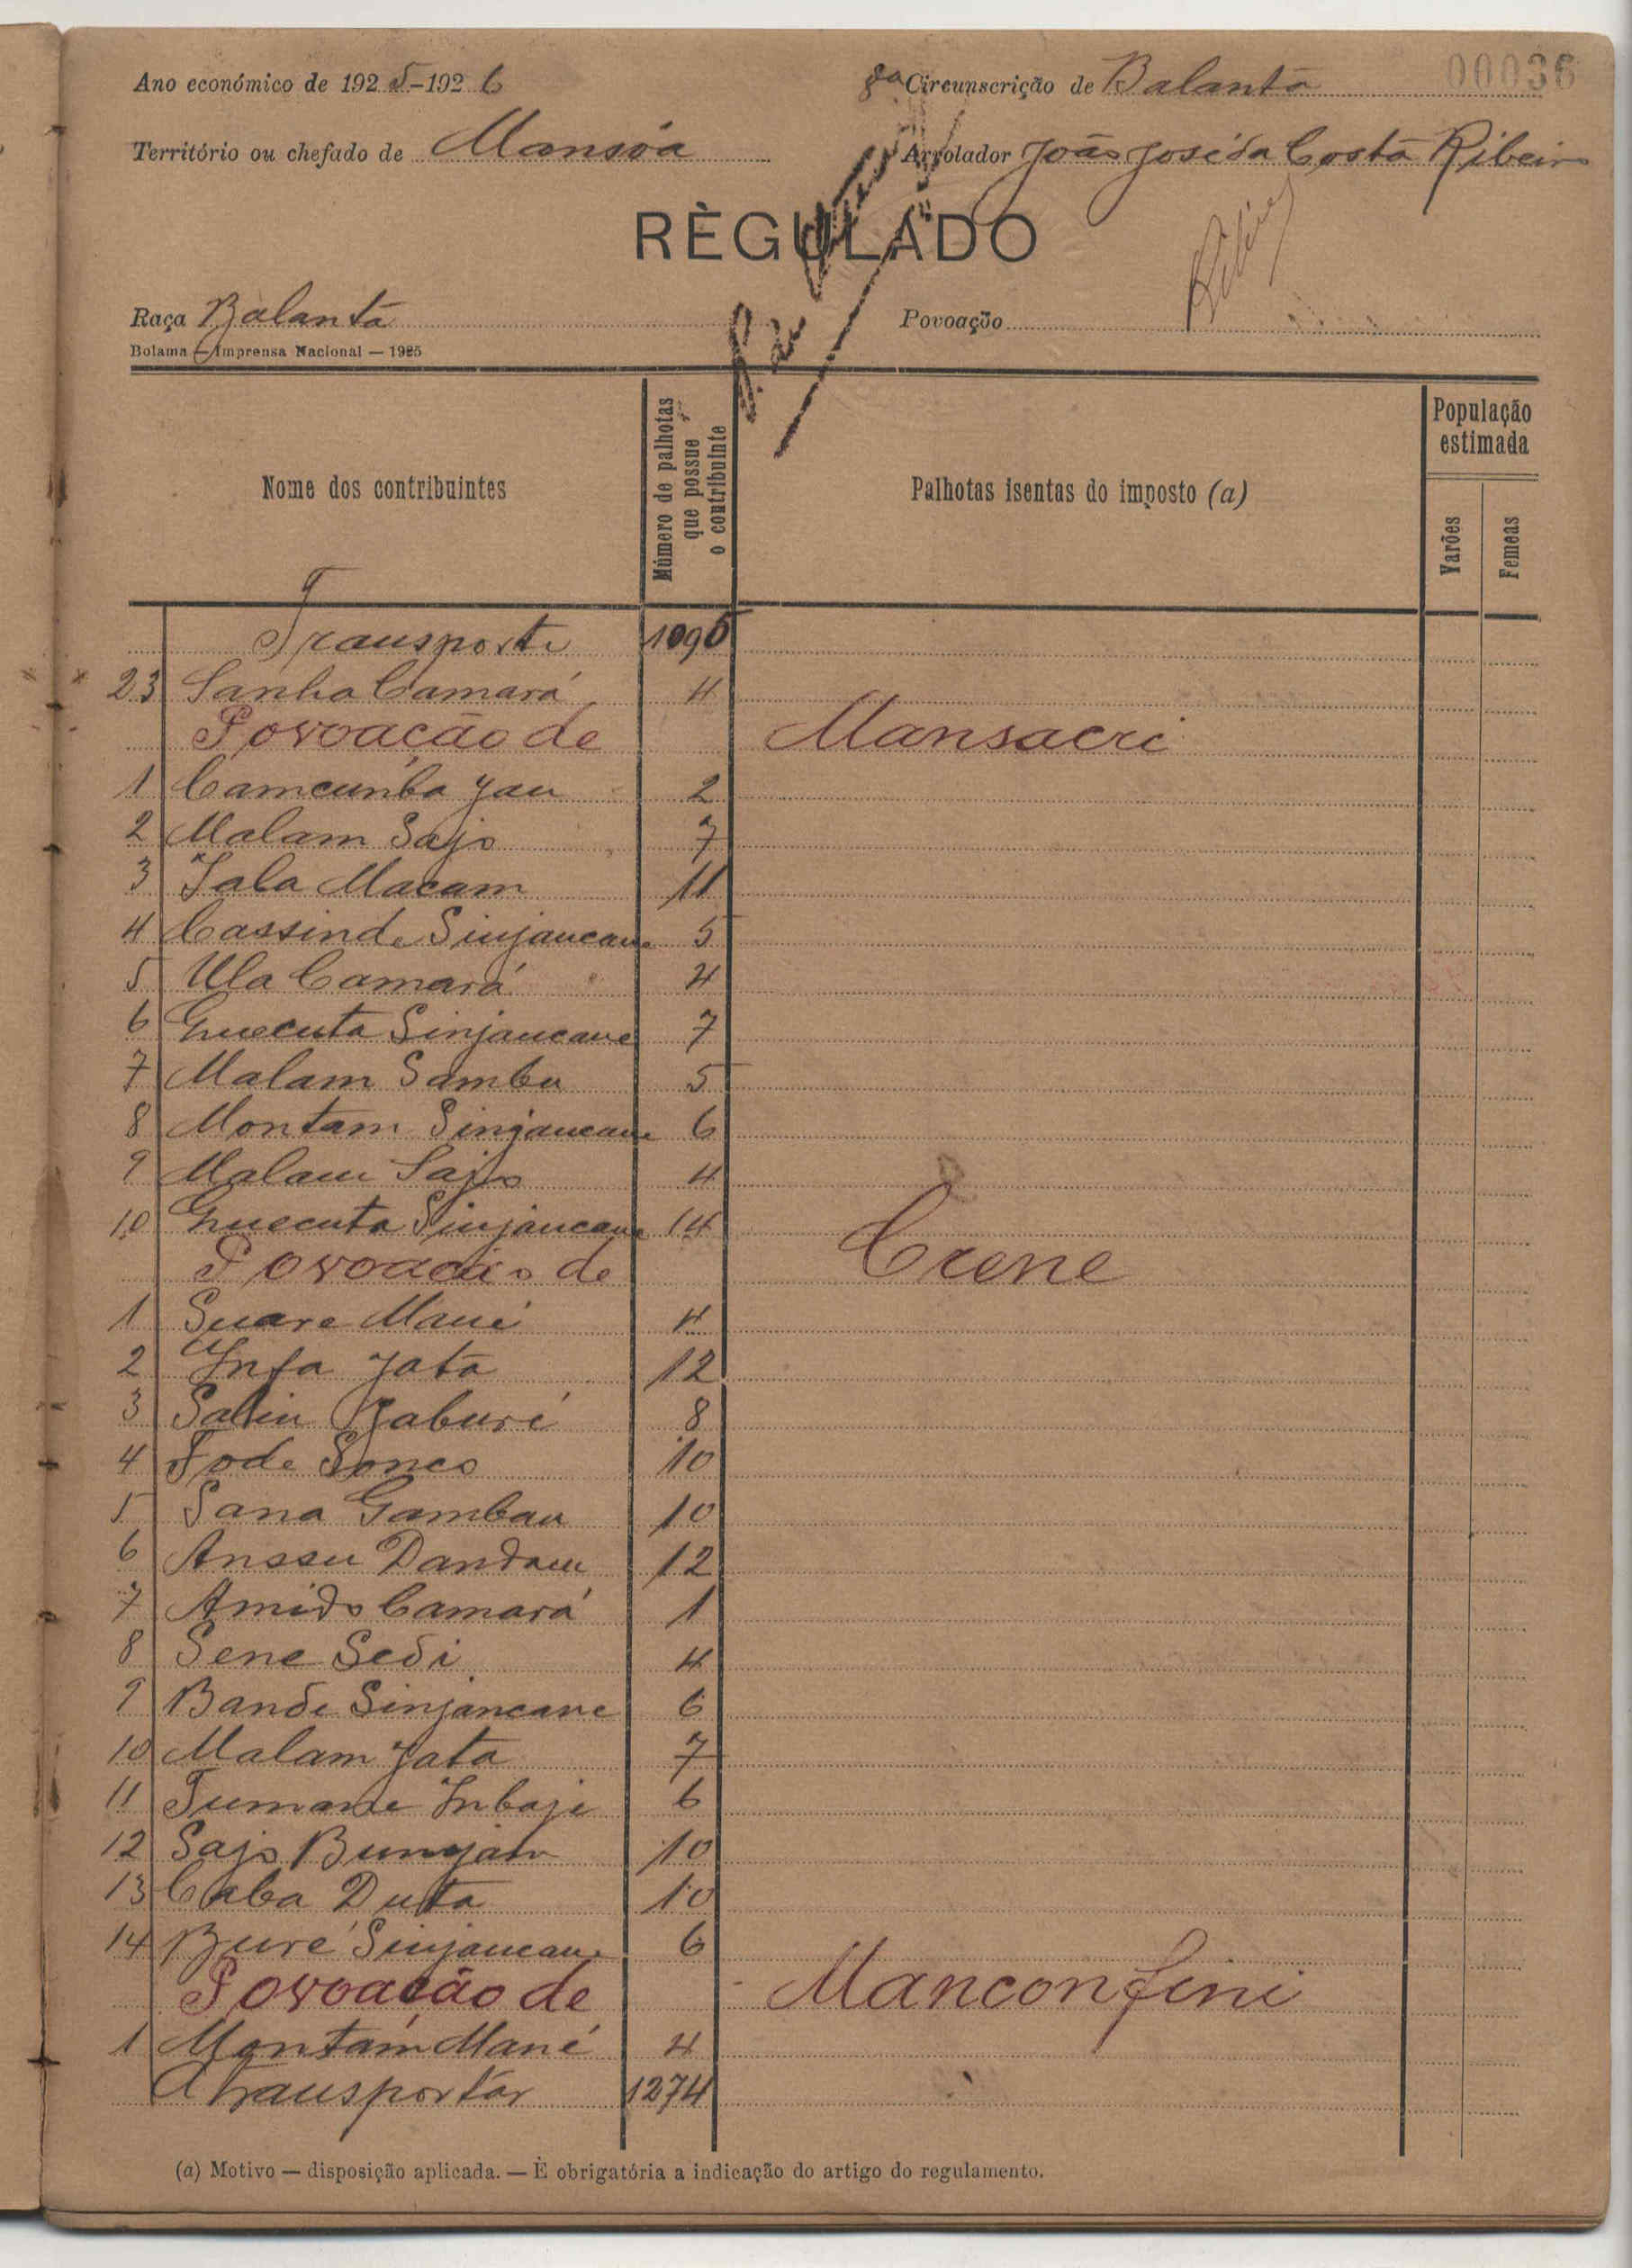 00036
Ano económico de 1925-1926
8ª Circunscrição de Balanta
Território ou chefado de Mansóa
Arrolador João José da Costa Ribeiro
RÈGULADO
Raça Balanta
Povoação
Bolama — Imprensa Nacional — 1925
Nome dos contribuintes
Número de palhotas que possue o contribuinte
Palhotas isentas do imposto (a)
População estimada
Varões
Femeas
Transporte 1096
23 Sanha Camará 4
Povoação de Mansacri
1 Camcunba Jau 2
2 Malam Sajo 7
3 Jala Macam 11
4 Cassinde Sinjancane 5
5 Ula Camará 4
6 Quecuta Sinjancane 7
7 Malam Sambu 5
8 Montam Sinjancane 6
9 Malam Sajo 4
10 Quecuta Sinjancane 14
Povoacão de Crene
1 Suare Mané 4
2 Infa Jata 12
3 Saliu Jaburé 8
4 Fode Sonco 10
5 Sana Gambau 10
6 Anssu Dandam 12
7 Amido Camará 1
8 Sene Sedi 4
9 Bande Sinjancane 6
10 Malam Jata 7
11 Tumane Inbaje 6
12 Sajo Bunjam 10
13 Caba Duta 10
14 Buré Sinjancane 6
Povoacão de Manconfini
1 Montam Mané 4
A transportar 1274
(a) Motivo — disposição aplicada. — È obrigatória a indicação do artigo do regulamento.